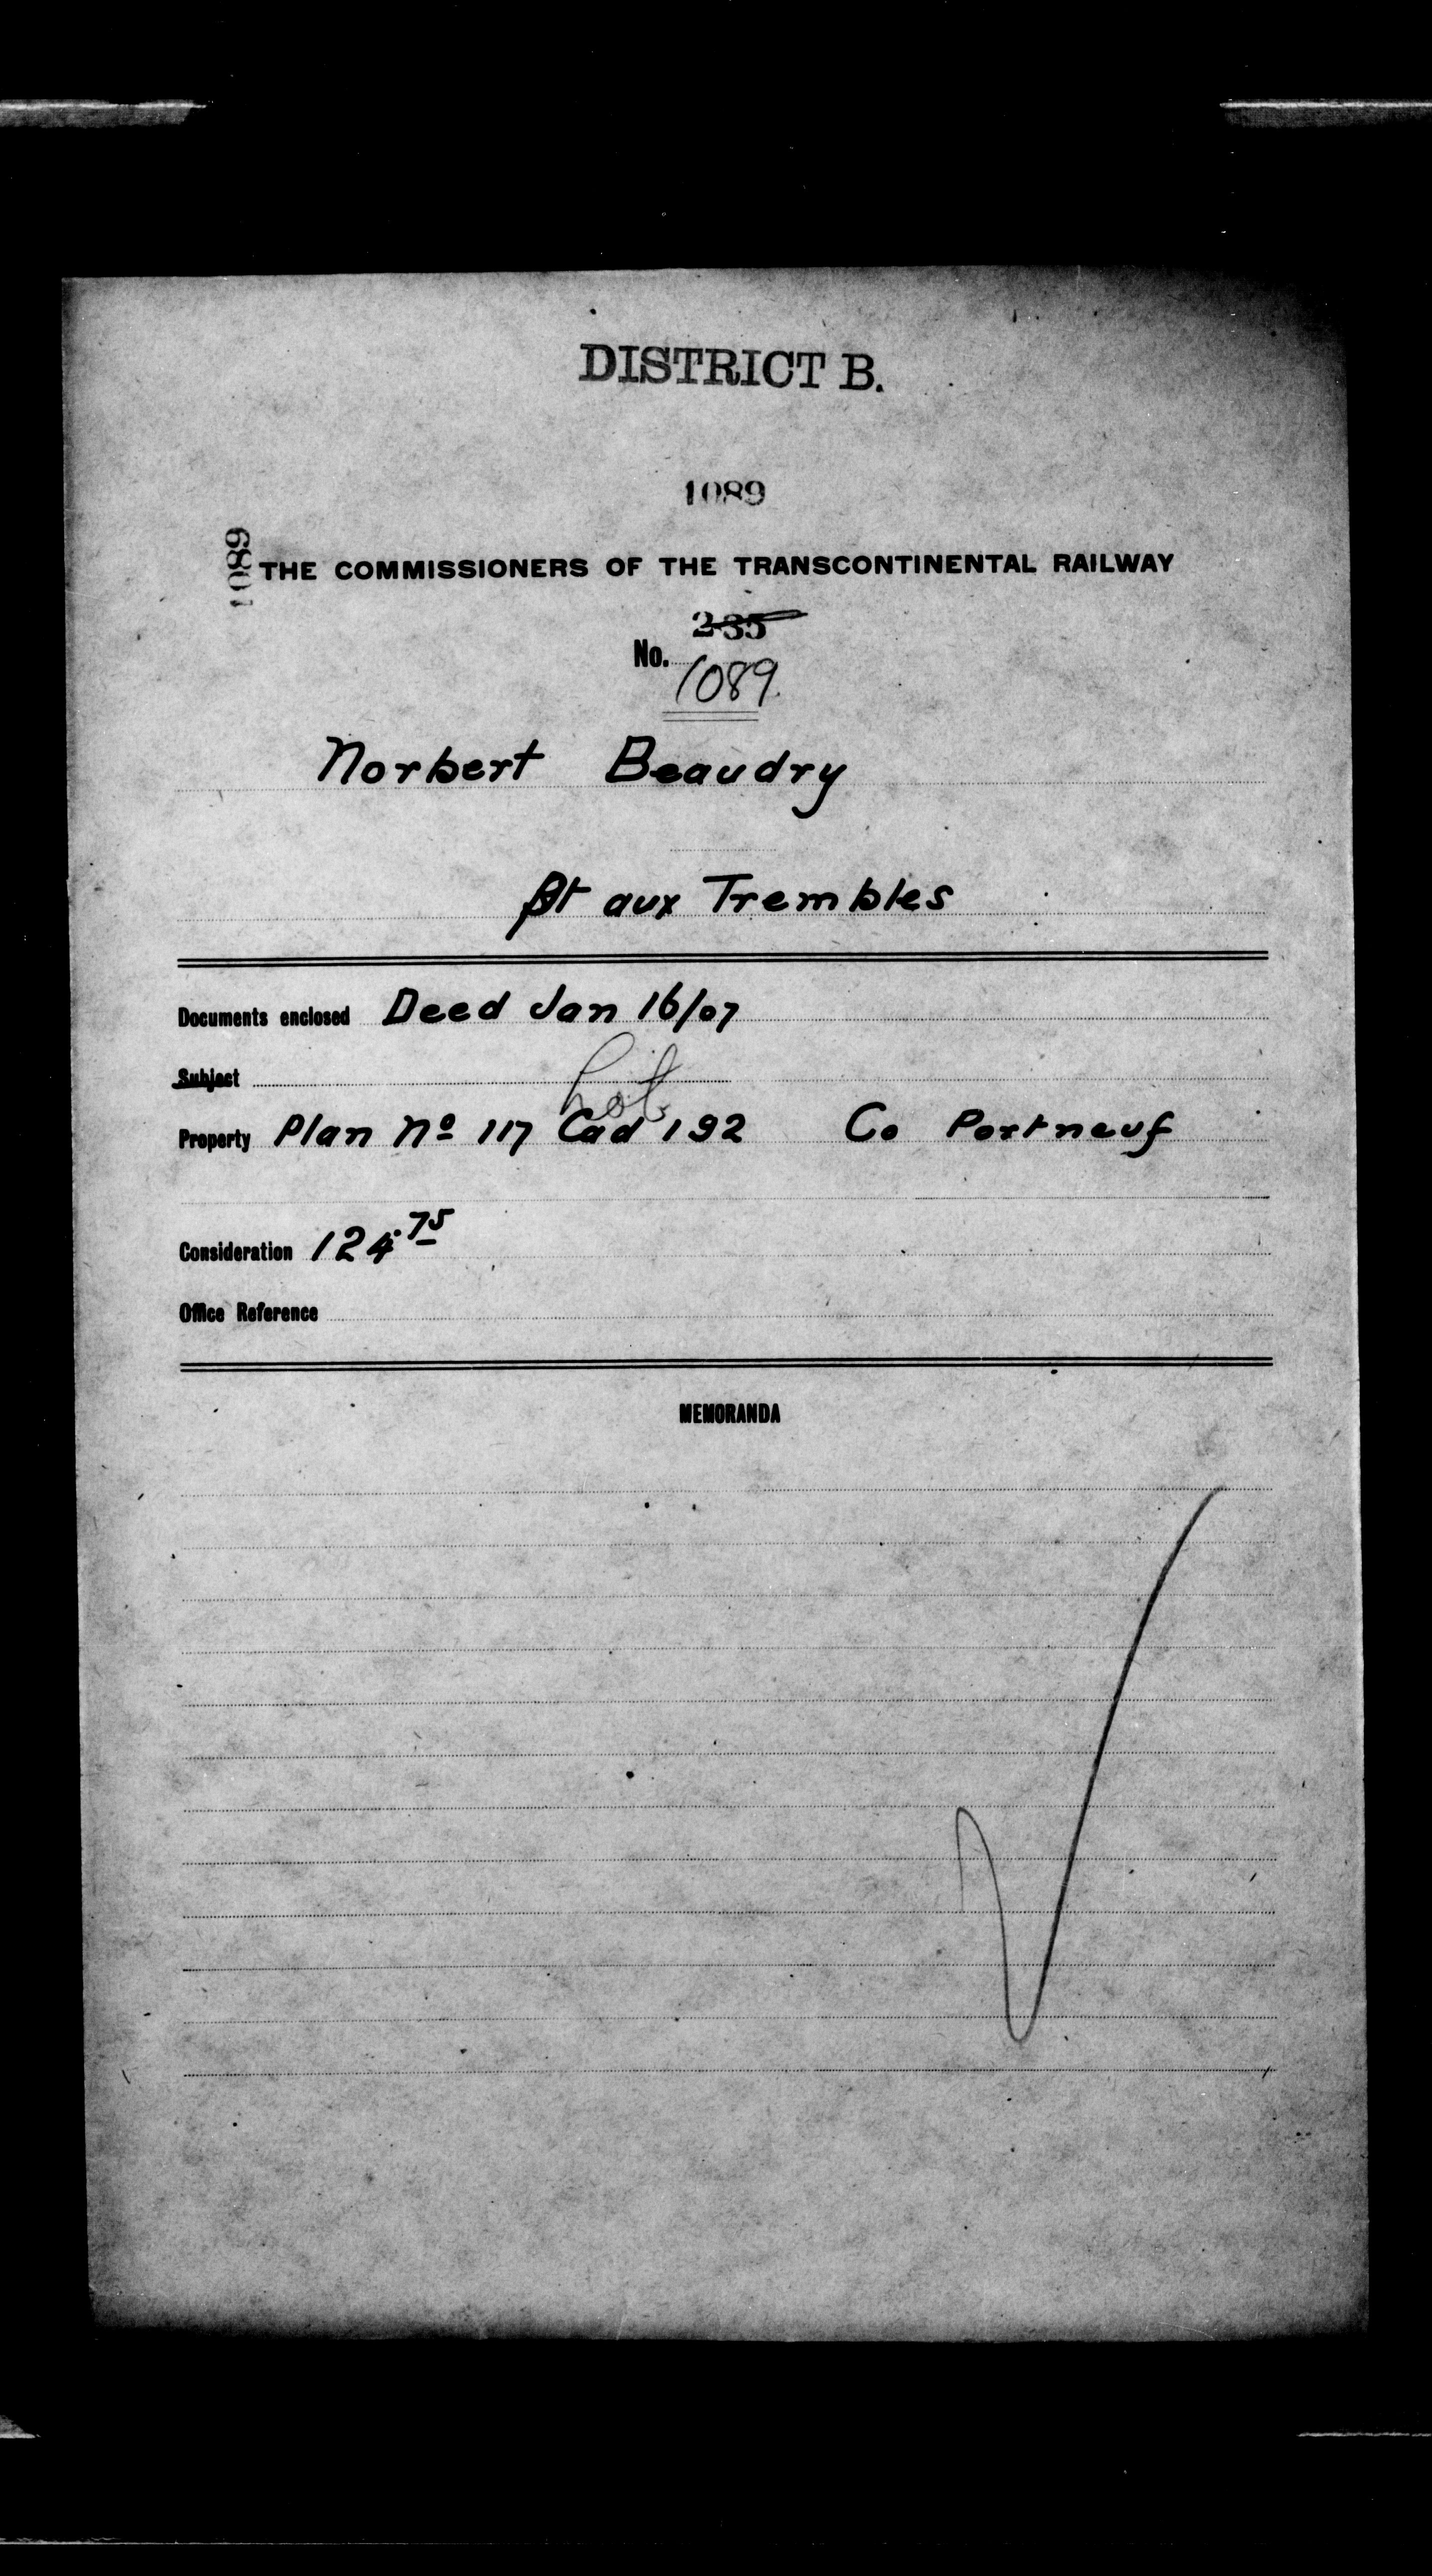 DISTRICT B.
1089
1089
THE COMMISSIONERS OF THE TRANSCONTINENTAL RAILWAY
235
No. 1089.
Norbert Beaudry
Pt aux Trembles
Documents enclosed Deed Jan 16/07
Subject
Lot
Property Plan No 117 Cad 192 Co Portneuf
Consideration 124.75
Office Reference
MEMORANDA